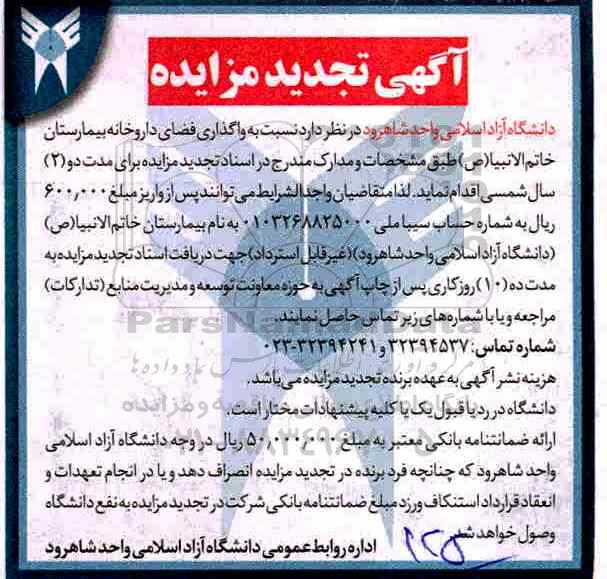 آگهی تجدید مزایده
دانشگاه آزاد اسلامی واحد شاهرود در نظر دارد نسبت به واگذاری فضای داروخانه بیمارستان
خاتم الانبیا(ص) طبق مشخصات و مدارک مندرج در اسناد تجدید مزایده برای مدت دو(۲)
سال شمسی اقدام نماید. لذا متقاضیان واجدالشرایط می توانند پس از واریز مبلغ ۶۰۰,۰۰۰
ریال به شماره حساب سیبا ملی ۰۱۰۳۲۶۸۸۲۵۰۰۰ به نام بیمارستان خاتم الانبیا(ص)
(دانشگاه آزاد اسلامی واحد شاهرود) (غیرقابل استرداد) جهت دریافت اسناد تجدید مزایده به
مدت ده (۱۰) روز کاری پس از چاپ آگهی به حوزه معاونت توسعه و مدیریت منابع (تدارکات)
مراجعه و یا با شماره های زیر تماس حاصل نمایند.
شماره تماس: ۳۲۳۹۴۵۳۷ و ۳۲۳۹۴۲۴۱-۰۲۳
هزینه نشر آگهی به عهده برنده تجدید مزایده می باشد.
دانشگاه در رد یا قبول یک یا کلیه پیشنهادات مختار است.
ارائه ضمانتنامه بانکی معتبر به مبلغ ۵۰,۰۰۰,۰۰۰ ریال در وجه دانشگاه آزاد اسلامی
واحد شاهرود که چنانچه فرد برنده در تجدید مزایده انصراف دهد و یا در انجام تعهدات و
انعقاد قرارداد استنکاف ورزد مبلغ ضمانتنامه بانکی شرکت در تجدید مزایده به نفع دانشگاه
وصول خواهد شد.
اداره روابط عمومی دانشگاه آزاد اسلامی واحد شاهرود
ParsNamadData